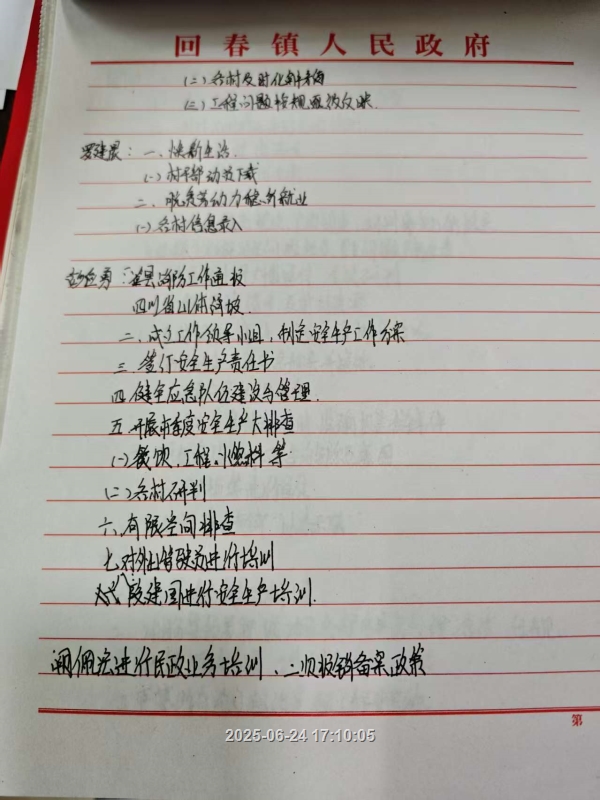 回春镇人民政府
(二)各村及时化解矛盾
(三)工程问题按规
罗建晨：一、焕新生活.
(一)村干部动员下载
二、脱贫劳动力稳岗就业
(一)各村信息录入
勇：一、县消防工作通报
四川省山体滑坡.
二、成立工作领导小组，制定安全生产工作方案
三、签订安全生产责任书
四、健全应急队伍建设与管理.
五、开展本季度安全生产大排查
(一)餐饮、工程、燃料等
(二)各村研判
六、有限空间排查
七、对外进行培训
八、段建国进行安全生产培训.
进行民政业务培训、二次报销备案政策
第
2025-06-24 17:10:05